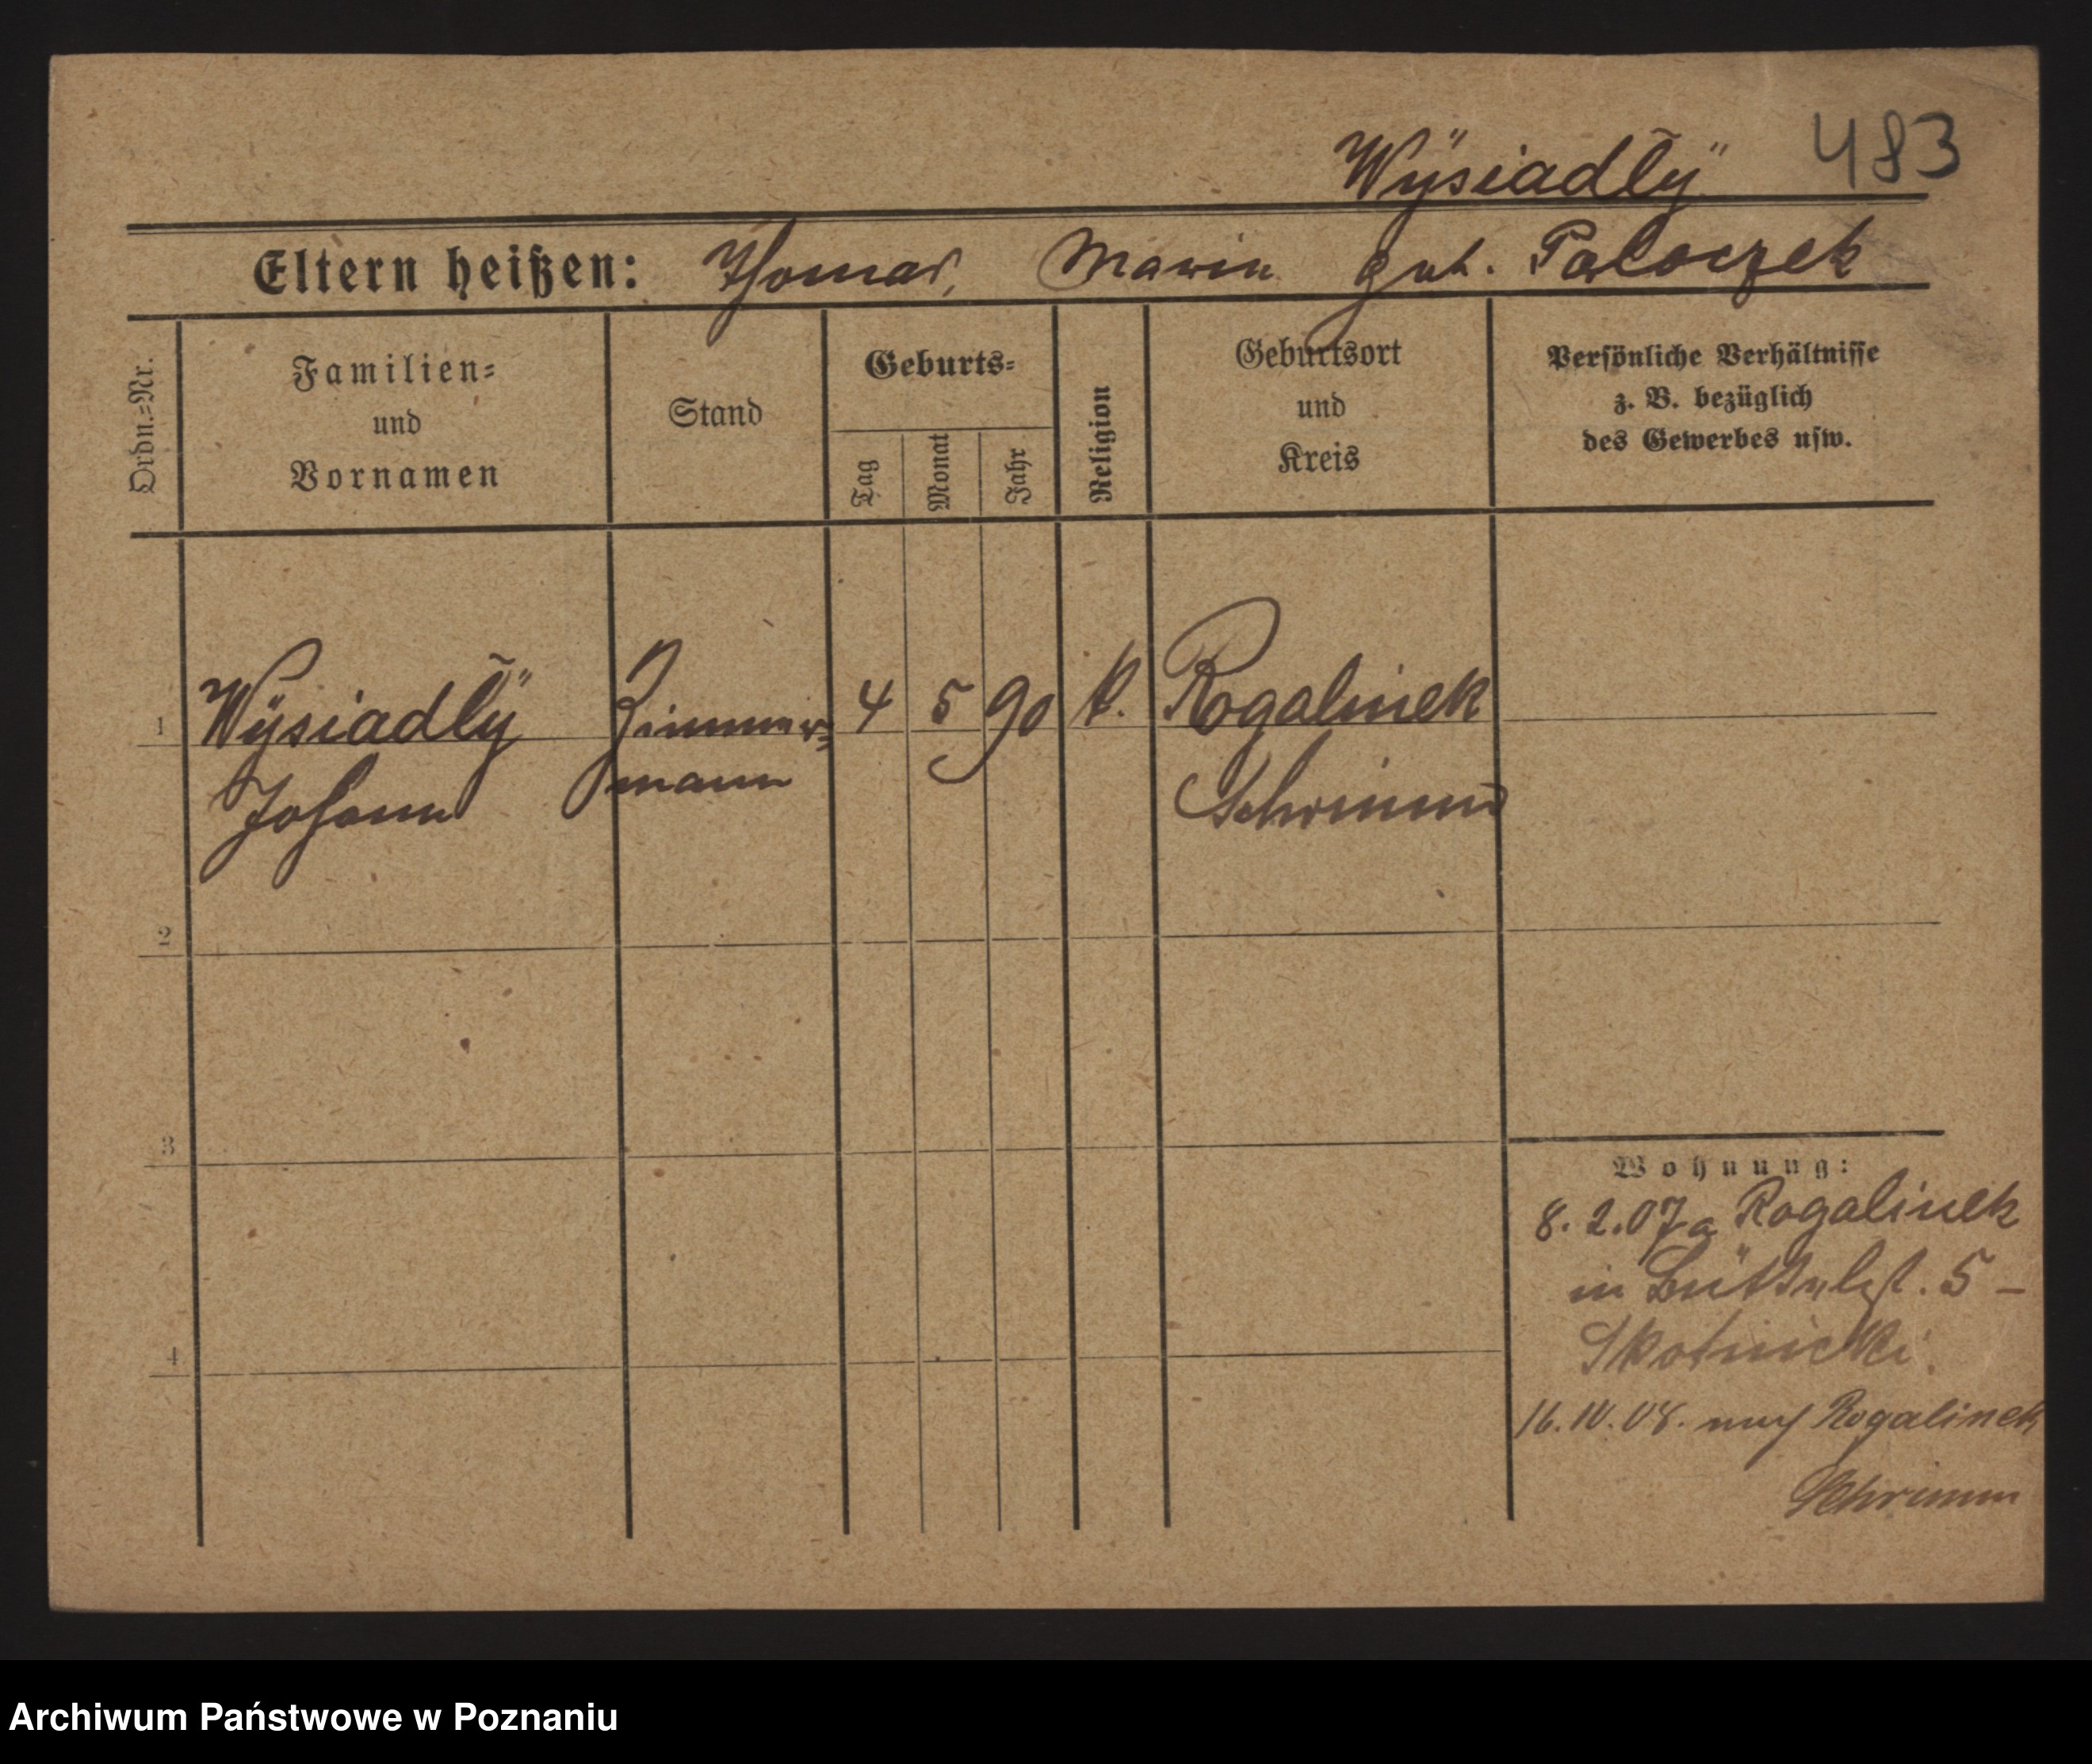 Wÿsiadłÿ 483
Eltern heißen: Thomas, Maria geb.
Ordn.=Nr.
Familien=
und
Vornamen
Stand
Geburts=
Tag
Monat
Jahr
Religion
Geburtsort
und
Kreis
Persönliche Verhältnisse
z. B. bezüglich
des Gewerbes usw.
1 Wÿsiadłÿ Zimmer= 4 5 90 k. Rogalinek
Johann mann Schrimm
2
3
4
Wohnung:
8.2.07 a Rogalinek
in Büttelst. 5 –
Skotnicki
16.IV.08. nach Rogalinek
Schrimm
Archiwum Państwowe w Poznaniu